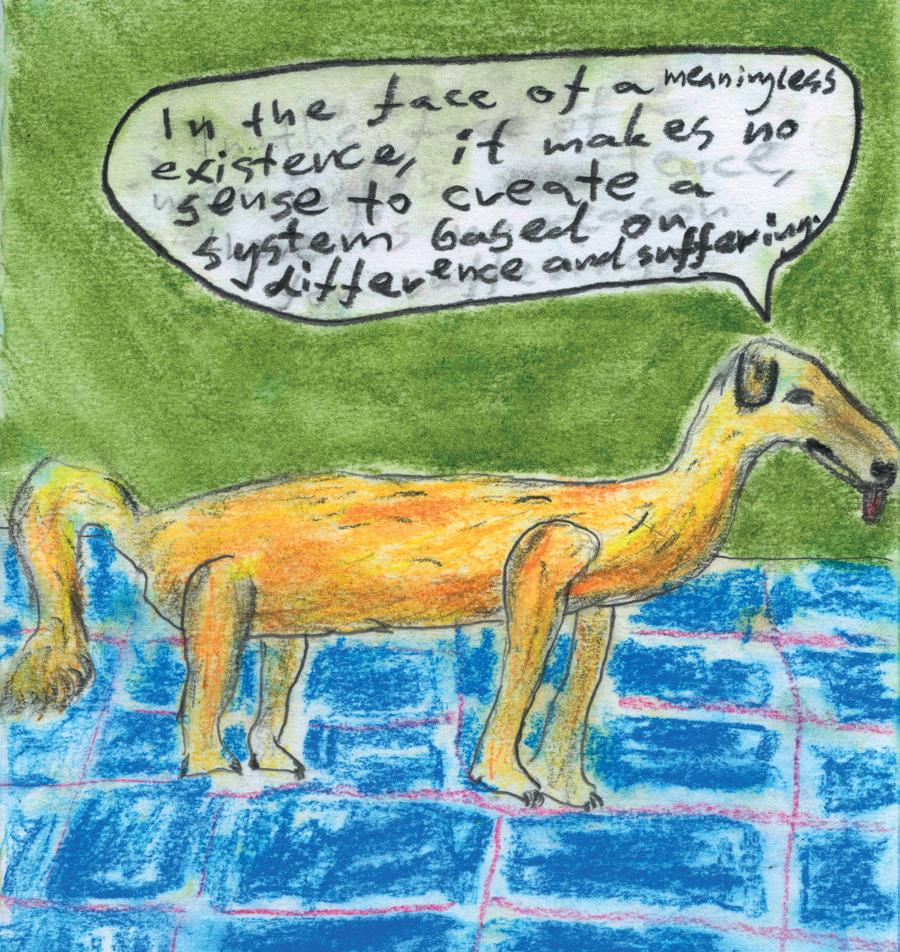 In the face of a meaningless
existence, it makes no
sense to create a
system based on
difference and suffering.